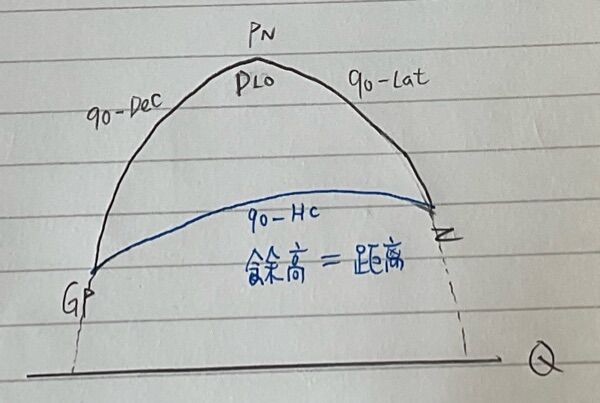 PN
DLO
90-Dec
90-Lat
90-Hc
餘高=距离
Z
GP
Q